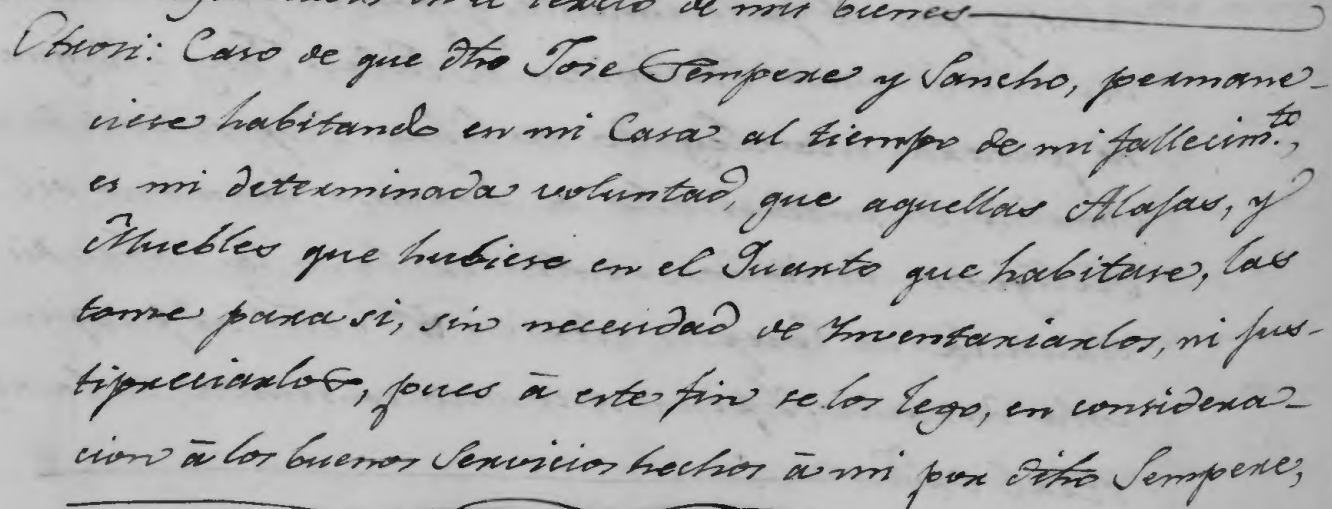 de mis bienes
Otrosi: Caso de que dho Jose Sempere y Sancho, permane-
ciese habitando en mi Casa al tiempo de mi fallecim.to,
es mi determinada voluntad, que aquellas Alajas, y
Muebles que hubiese en el Quarto que habitase, las
tome para si, sin necesidad de Inventariarlos, ni jus-
tipreciarlos, pues â este fin se los lego, en considera-
cion â los buenos Servicios hechos â mi por dicho Sempere,